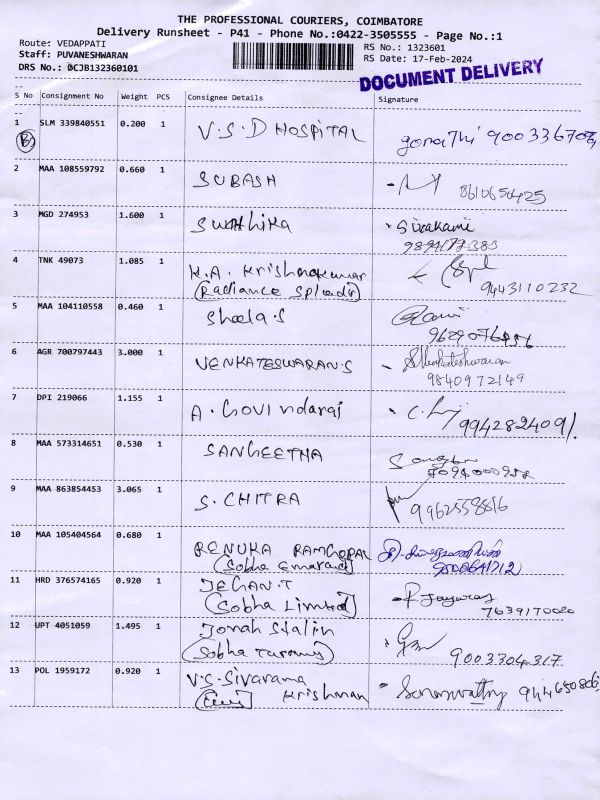 THE PROFESSIONAL COURIERS, COIMBATORE
Delivery Runsheet - P41 - Phone No.:0422-3505555 - Page No.:1
Route: VEDAPPATI
RS No.: 1323601
Staff: PUVANESHWARAN
RS Date: 17-Feb-2024
DRS No.: 0CJB132360101
DOCUMENT DELIVERY
S No Consignment No Weight PCS Consignee Details Signature
1 SLM 339840551 0.200 1 V.S.D HOSPITAL
2 MAA 108559792 0.660 1 SUBASH 8610650425
3 MGD 274953 1.600 1 Swathika Sivakami
4 TNK 49073 1.085 1 K.A. Krishnakumar 9443110232
(Radiance Splendr)
5 MAA 104110558 0.460 1 Sheela.S
6 AGR 700797443 3.000 1 VENKATESWARAN.S
9840972149
7 DPI 219066 1.155 1 A. Govindaraj 9942824091
8 MAA 573314651 0.530 1 SANGEETHA
9 MAA 863854453 3.065 1 S. CHITRA 9962558816
10 MAA 105404564 0.680 1 RENUKA RAMGOPAL
(Sobha Emarald)
11 HRD 376574165 0.920 1 JEGAN.T
(Sobha Limited) 7639170020
12 UPT 4051059 1.495 1 Jonah Stalin
(Sobha Turany) 9003304317
13 POL 1959172 0.920 1 V.S. Sivarama
Krishnan Saraswathy